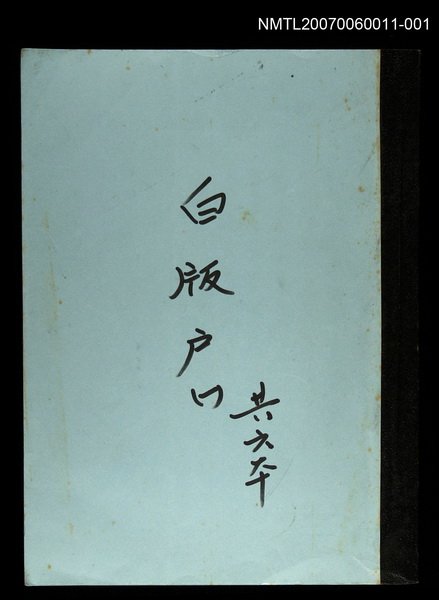 NMTL20070060011-001
白版户口
共六本